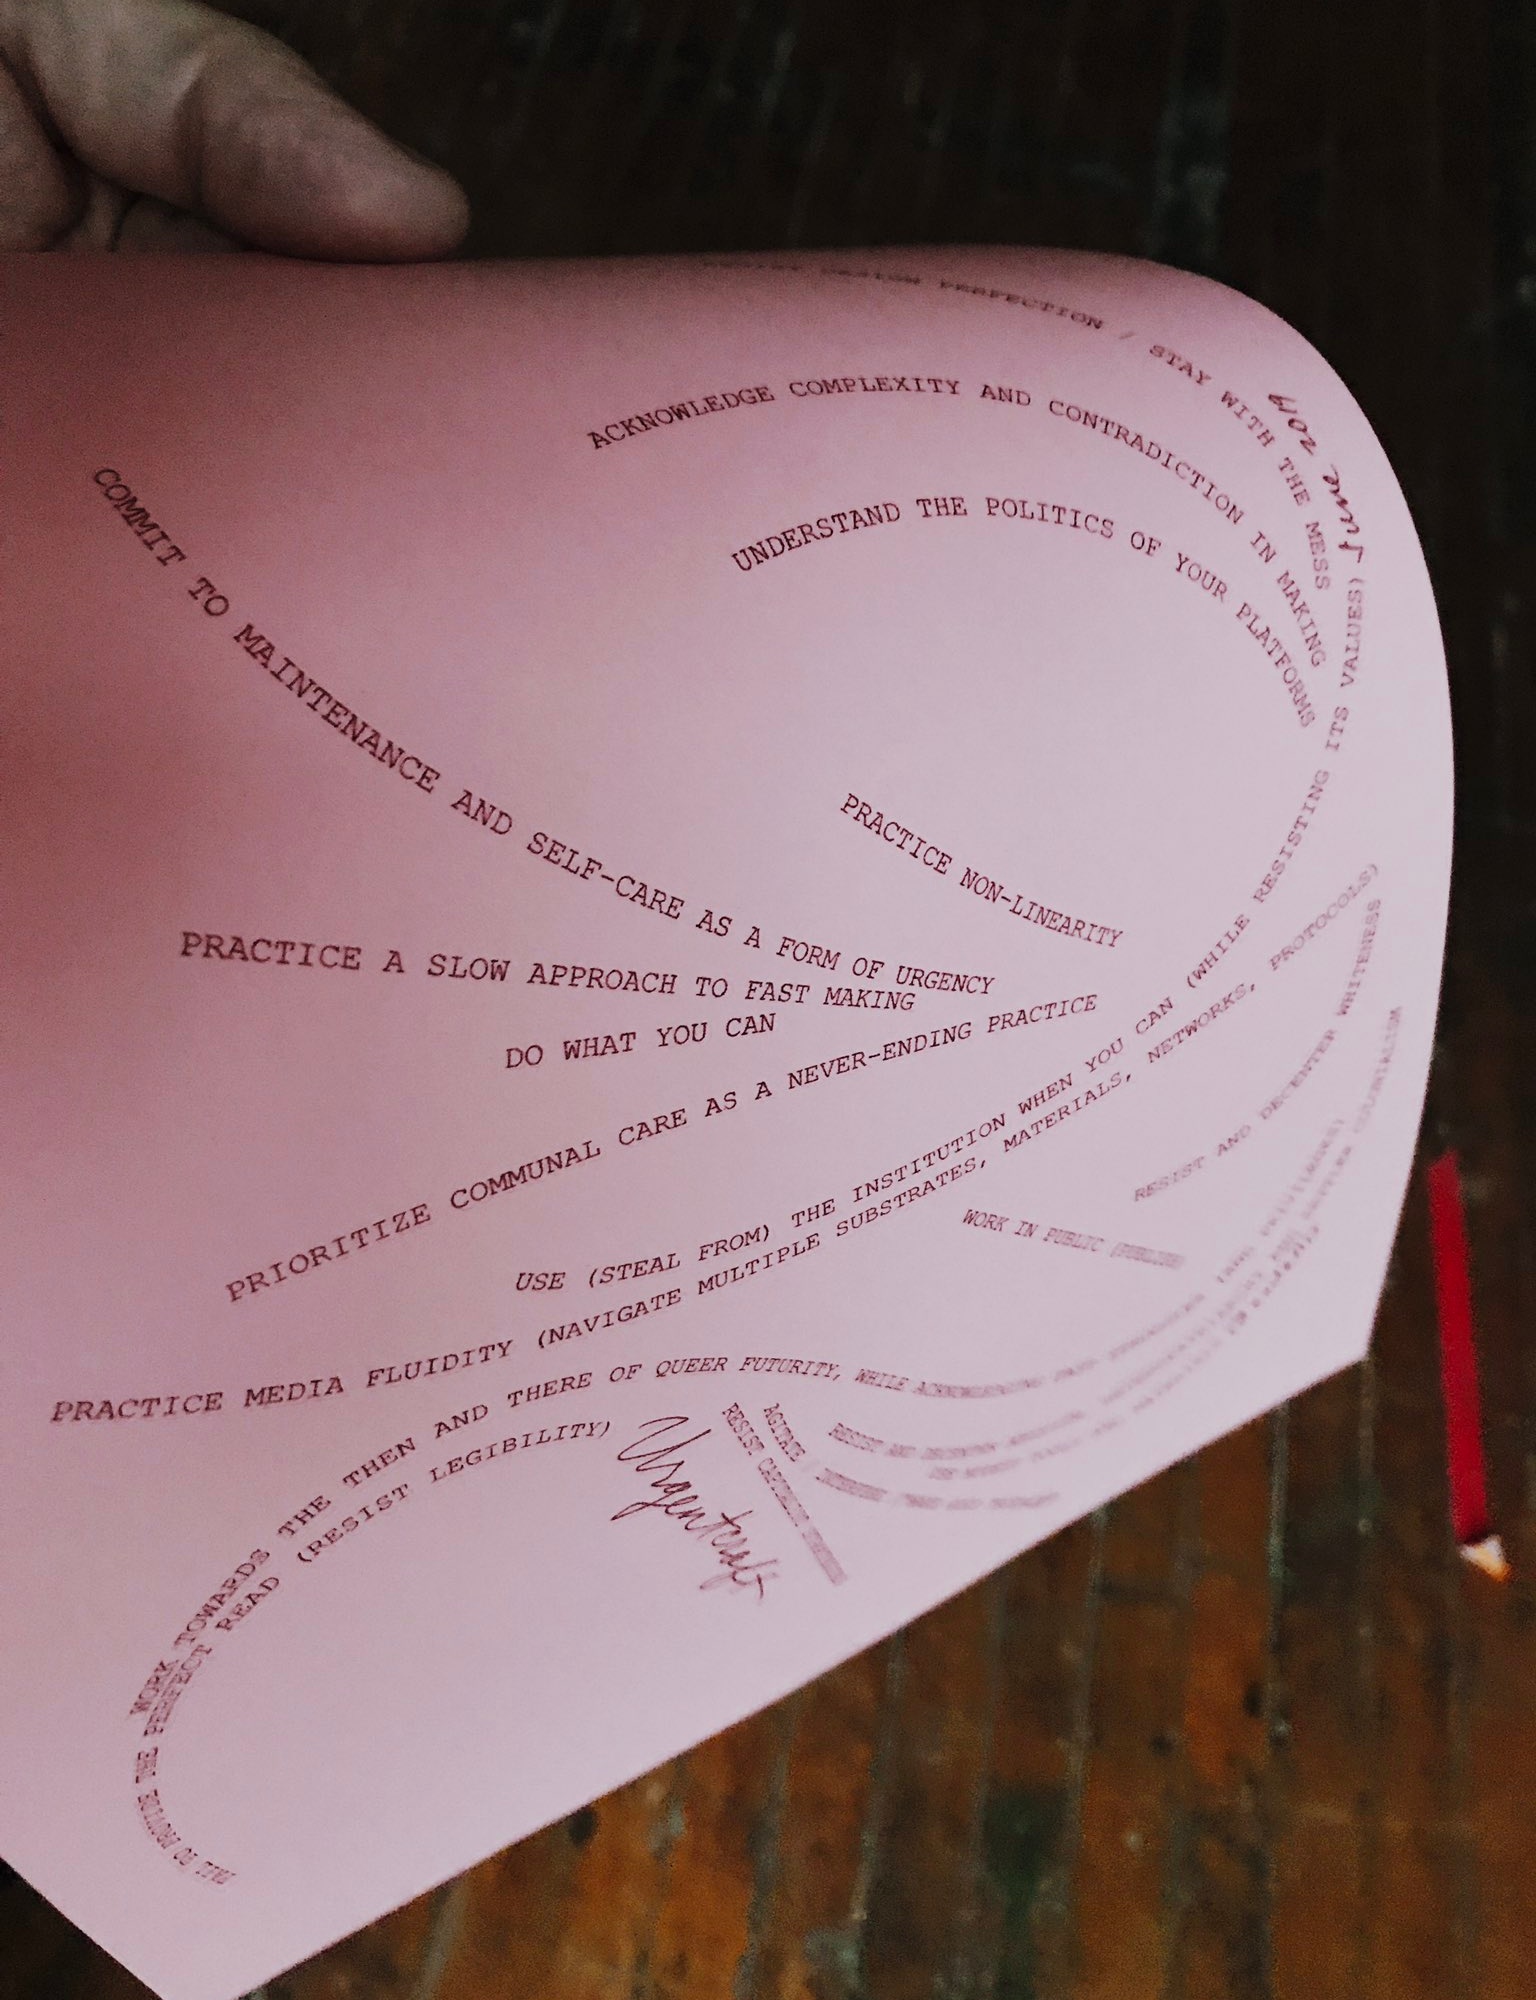 DESIGN PERFECTION / STAY WITH THE MESS
June 2019
ACKNOWLEDGE COMPLEXITY AND CONTRADICTION IN MAKING
UNDERSTAND THE POLITICS OF YOUR PLATFORMS
COMMIT TO MAINTENANCE AND SELF-CARE AS A FORM OF URGENCY
PRACTICE NON-LINEARITY
PRACTICE A SLOW APPROACH TO FAST MAKING
DO WHAT YOU CAN
PRIORITIZE COMMUNAL CARE AS A NEVER-ENDING PRACTICE
USE (STEAL FROM) THE INSTITUTION WHEN YOU CAN (WHILE RESISTING ITS VALUES)
PRACTICE MEDIA FLUIDITY (NAVIGATE MULTIPLE SUBSTRATES, MATERIALS, NETWORKS, PROTOCOLS)
RESIST AND DECENTER WHITENESS
WORK IN PUBLIC (PUBLISH)
WORK TOWARDS THE THEN AND THERE OF QUEER FUTURITY, WHILE ACKNOWLEDGING PAST
FAIL TO PROVIDE THE PERFECT READ (RESIST LEGIBILITY)
Urgentcraft
AGITATE /
RESIST CAPITALIST
RESIST AND DECENTER